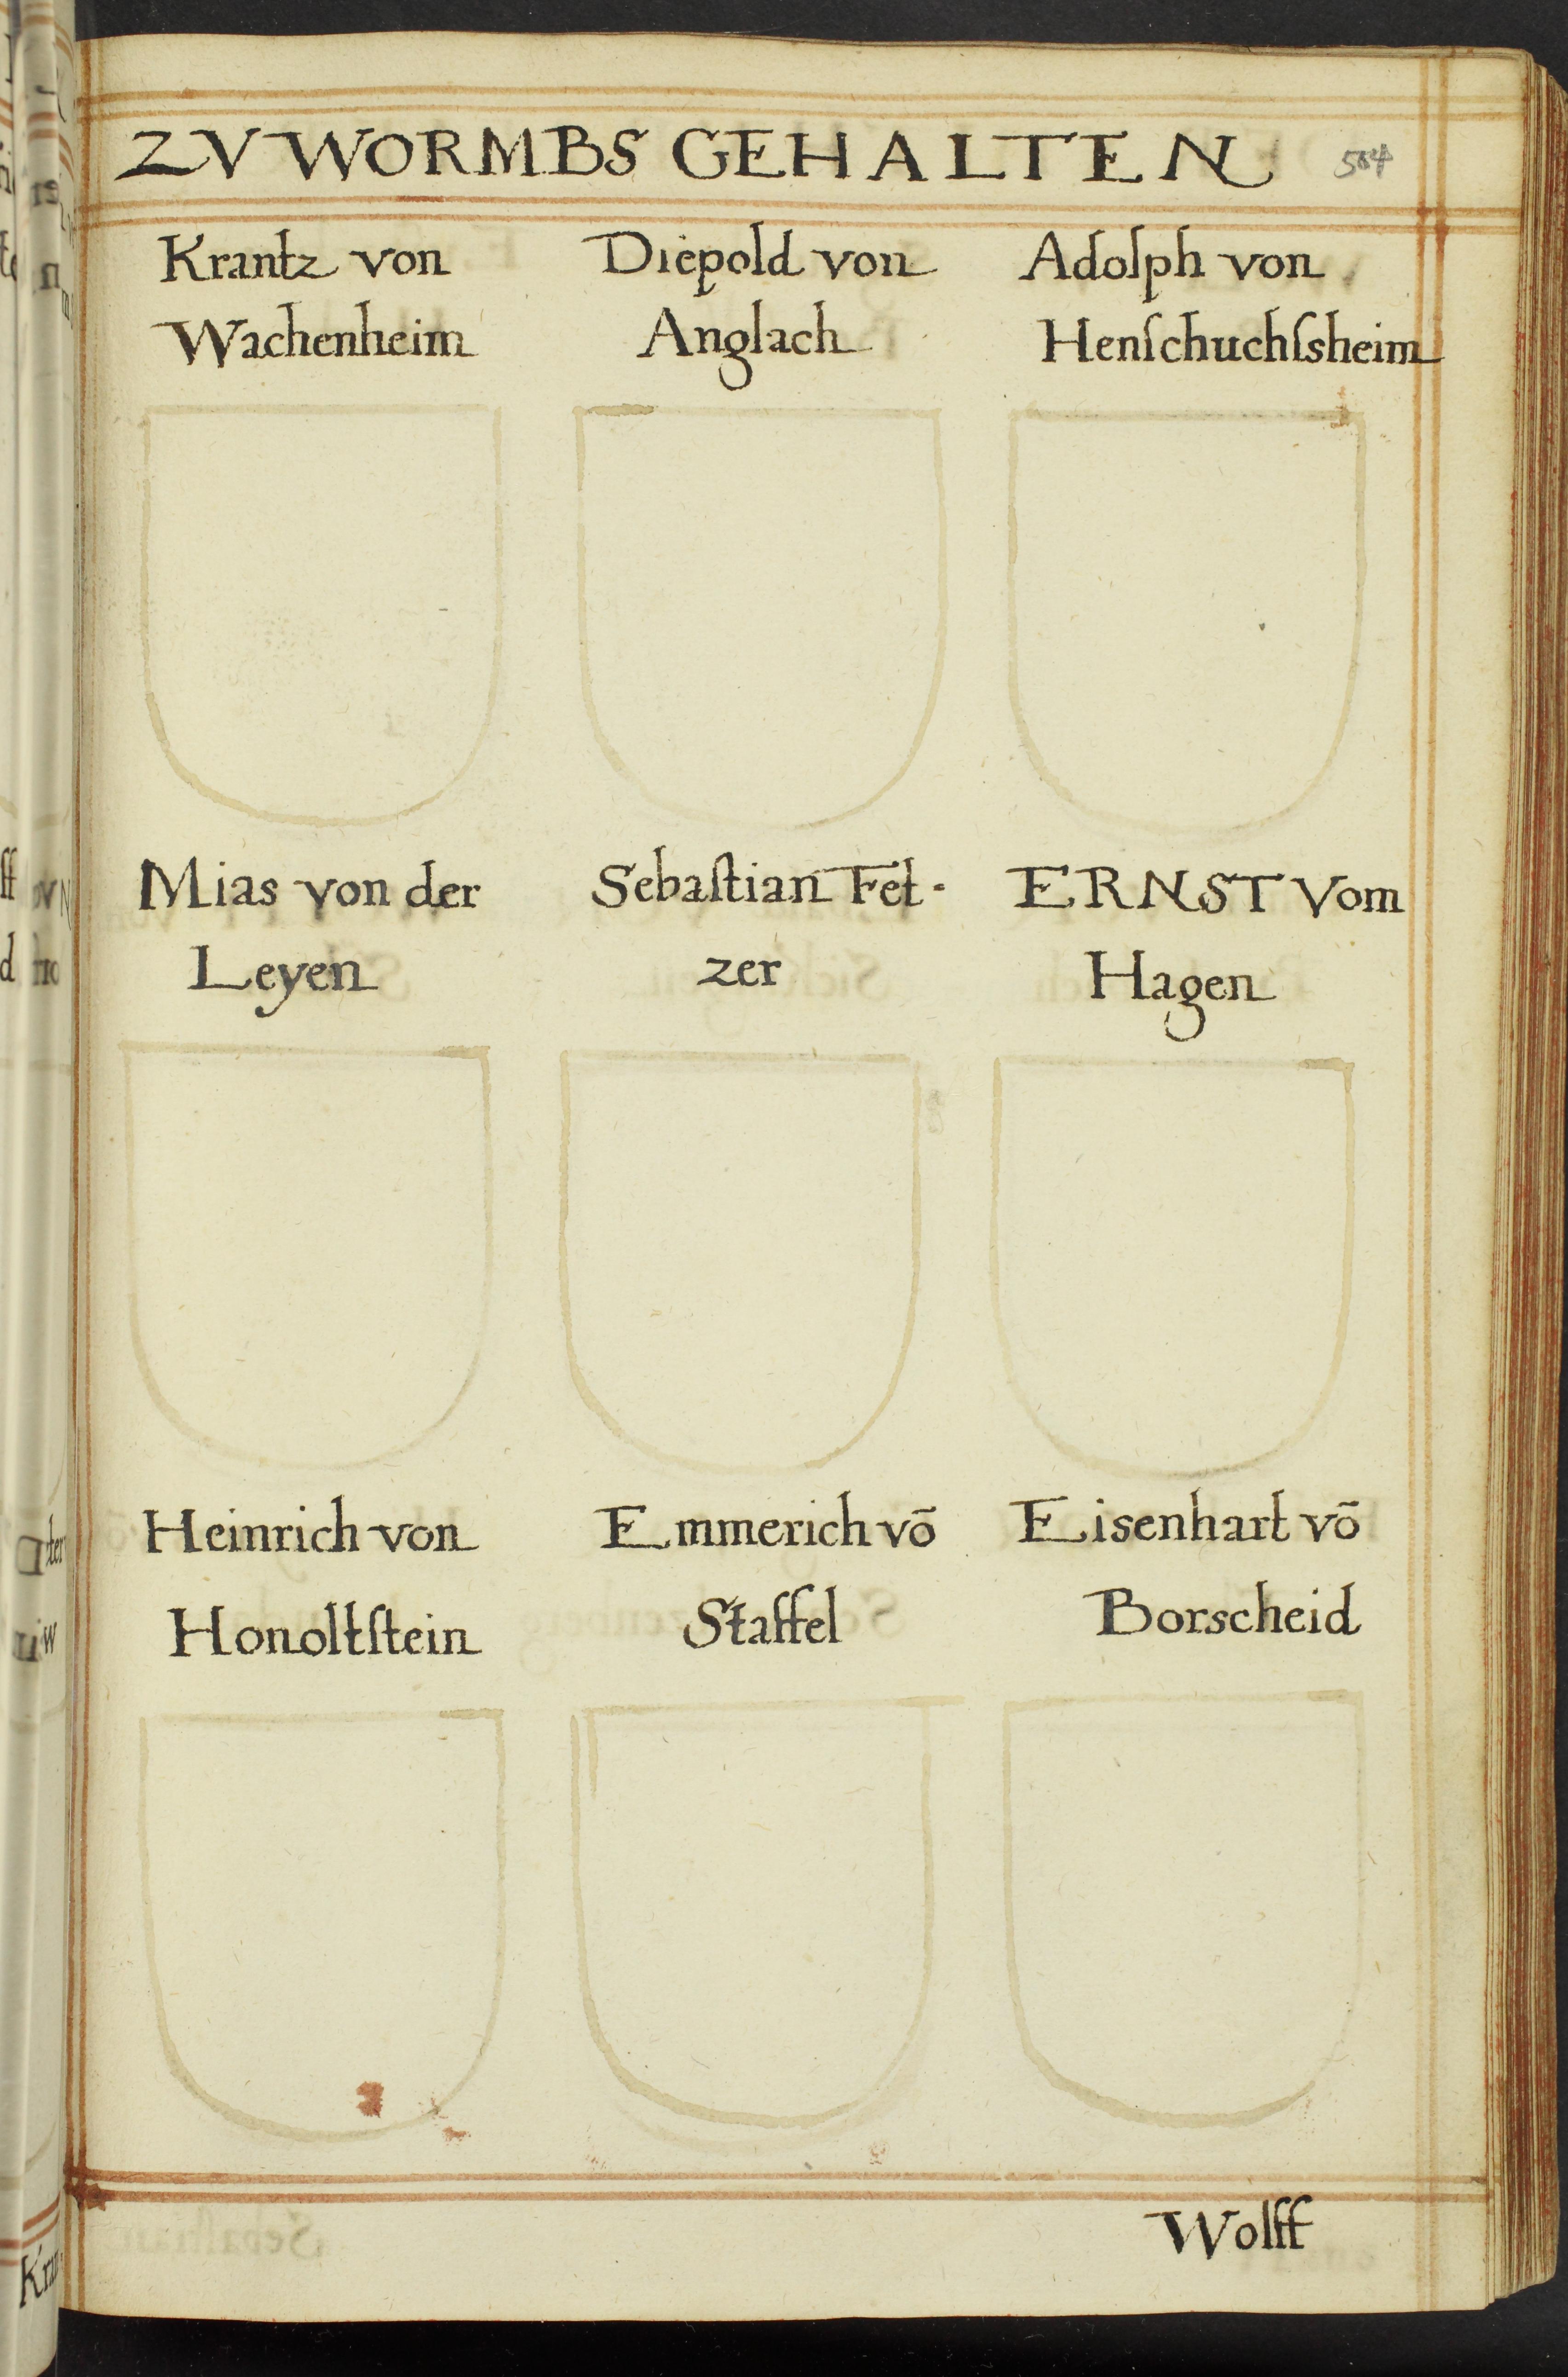 ZV WORMBS GEHALTEN 504
Krantz von
Wachenheim
Diepold von
Anglach
Adolph von
Henſchuchſsheim
Mias von der
Leyen
Sebaſtian Fet-
zer
ERNST Vom
Hagen
Heinrich von
Honoltſtein
Emmerich võ
Staffel
Eisenhart võ
Borscheid
Wolff